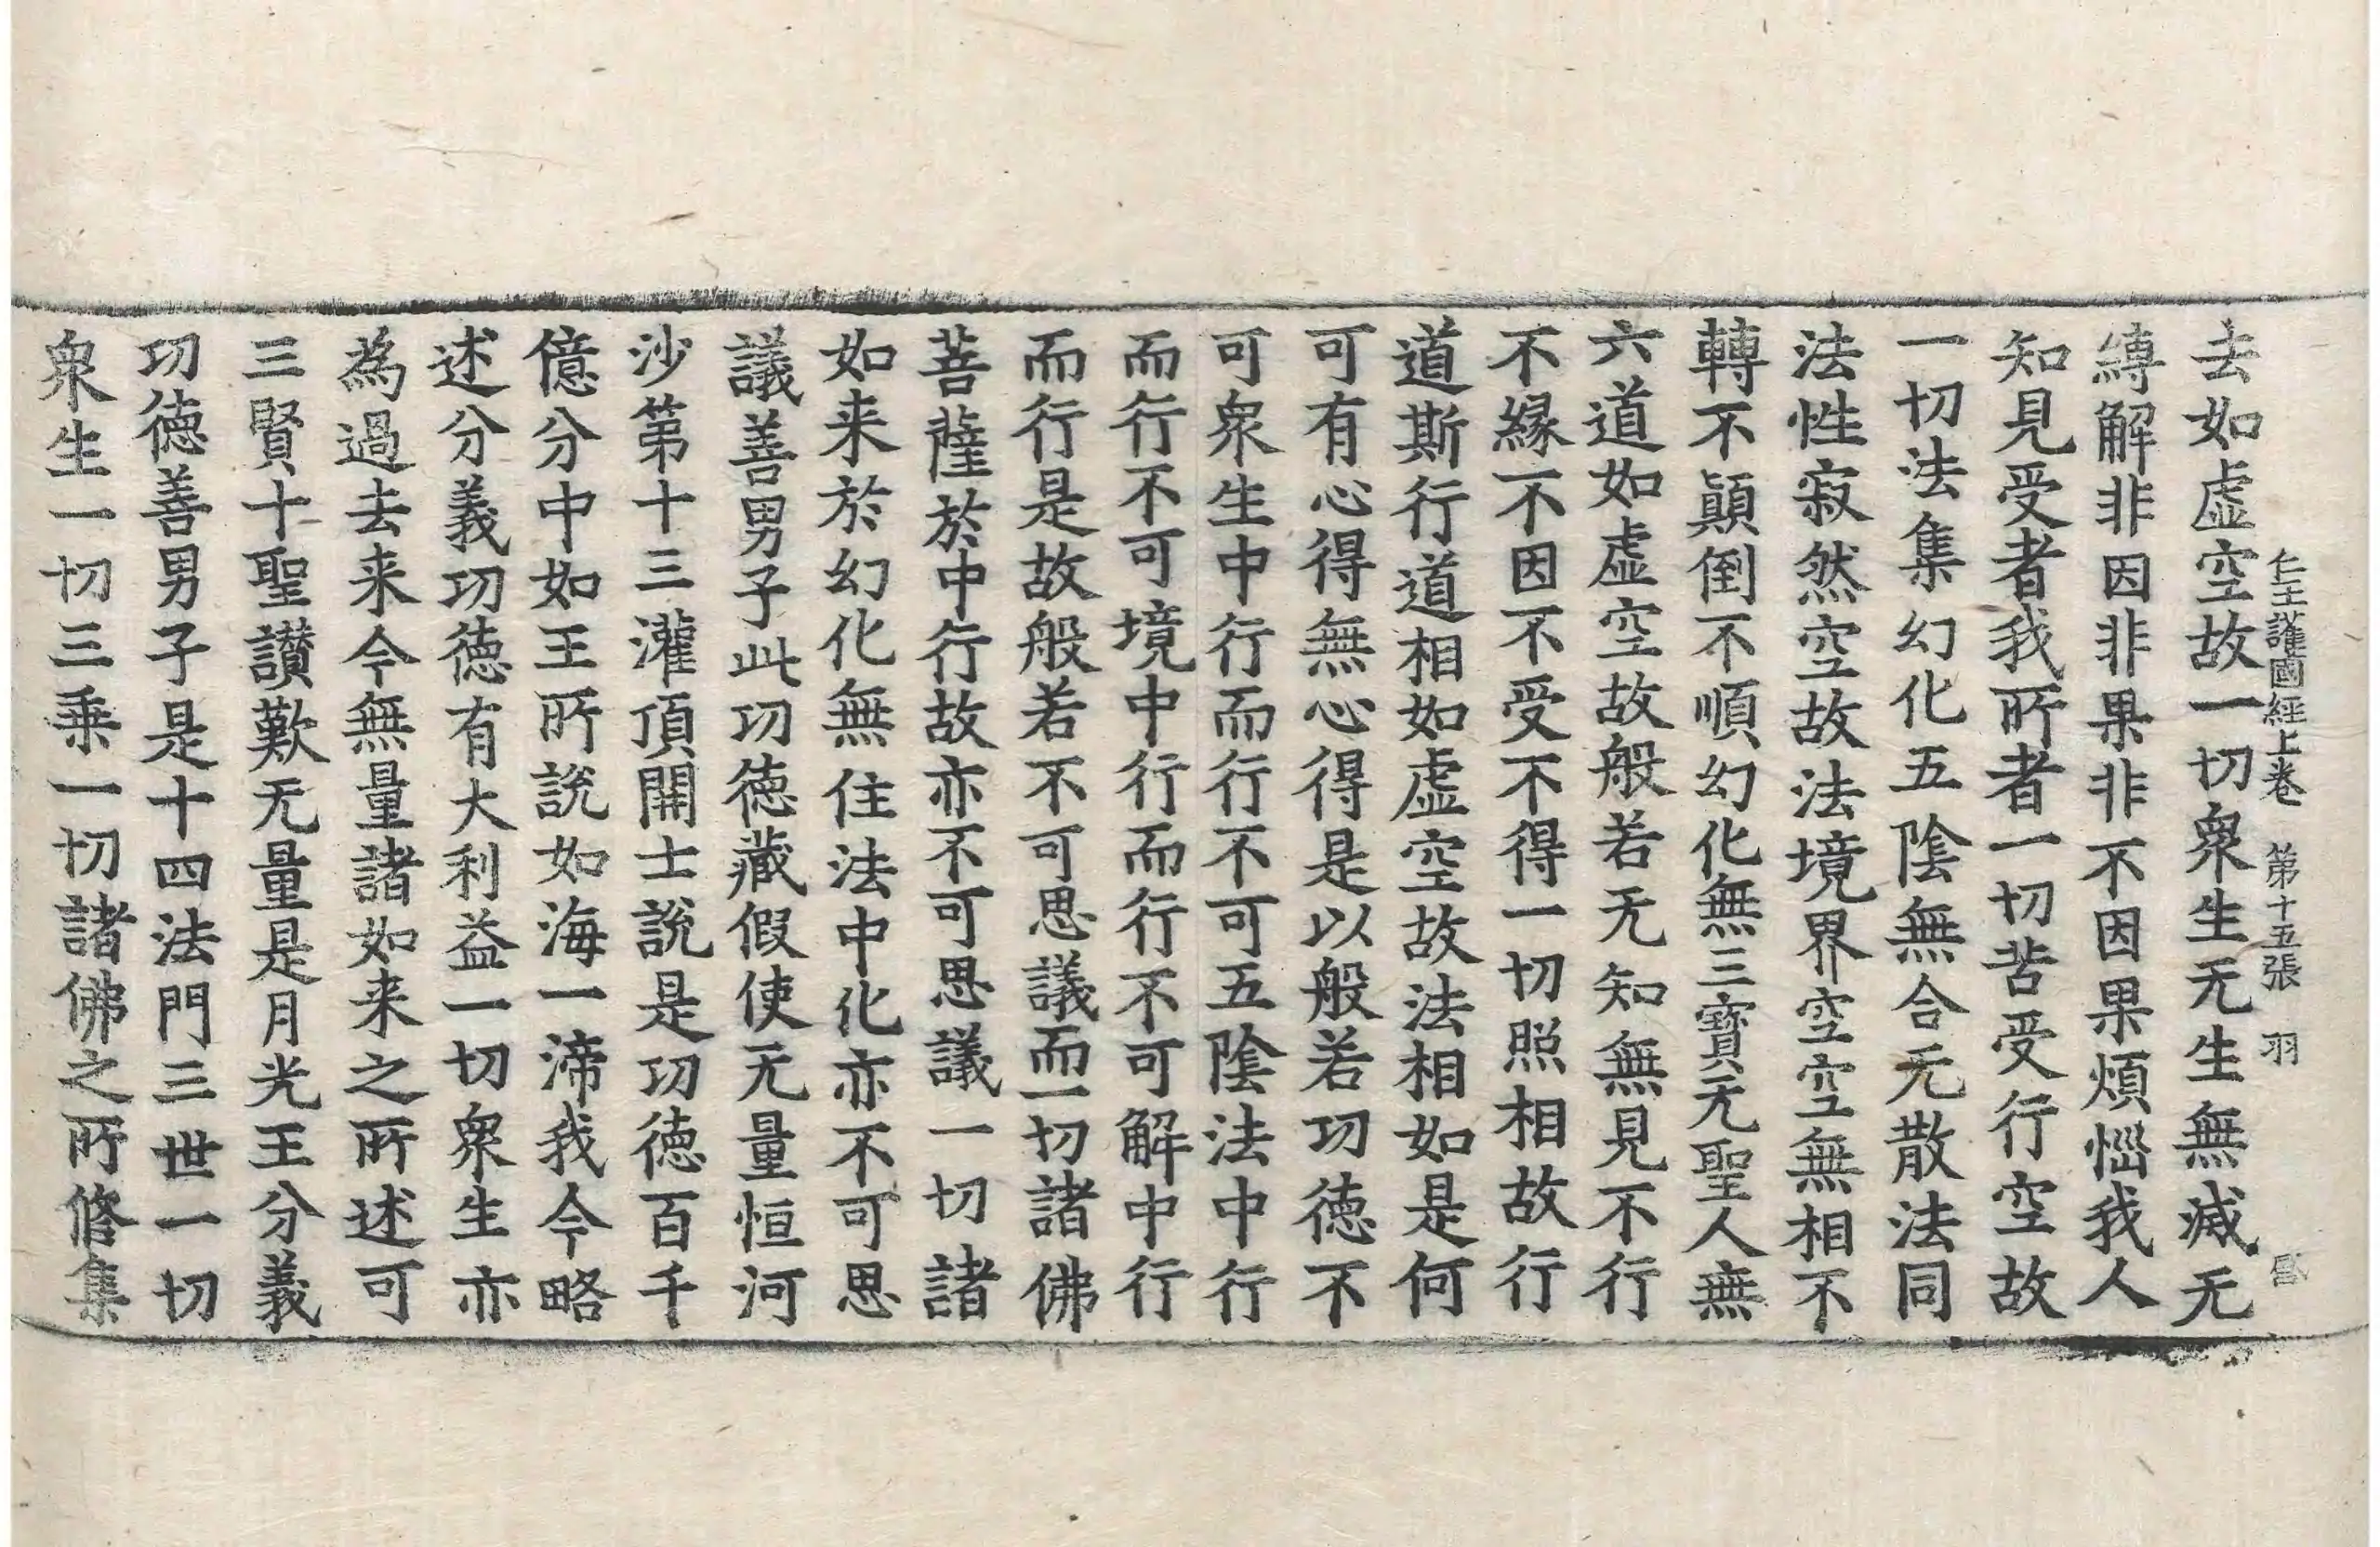 仁王護國經上卷 第十五張 羽
去如虛空故一切衆生无生無滅无
縛解非因非果非不因果煩惱我人
知見受者我所者一切苦受行空故
一切法集幻化五陰無合无散法同
法性寂然空故法境界空空無相不
轉不顚倒不順幻化無三寶无聖人無
六道如虛空故般若无知無見不行
不緣不因不受不得一切照相故行
道斯行道相如虛空故法相如是何
可有心得無心得是以般若功德不
可衆生中行而行不可五陰法中行
而行不可境中行而行不可解中行
而行是故般若不可思議而一切諸佛
菩薩於中行故亦不可思議一切諸
如来於幻化無住法中化亦不可思
議善男子此功德藏假使无量恒河
沙第十三灌頂開士說是功德百千
億分中如王所說如海一渧我今略
述分義功德有大利益一切衆生亦
為過去来今無量諸如来之所述可
三賢十聖讃歎无量是月光王分義
功德善男子是十四法門三世一切
衆生一切三乗一切諸佛之所修集